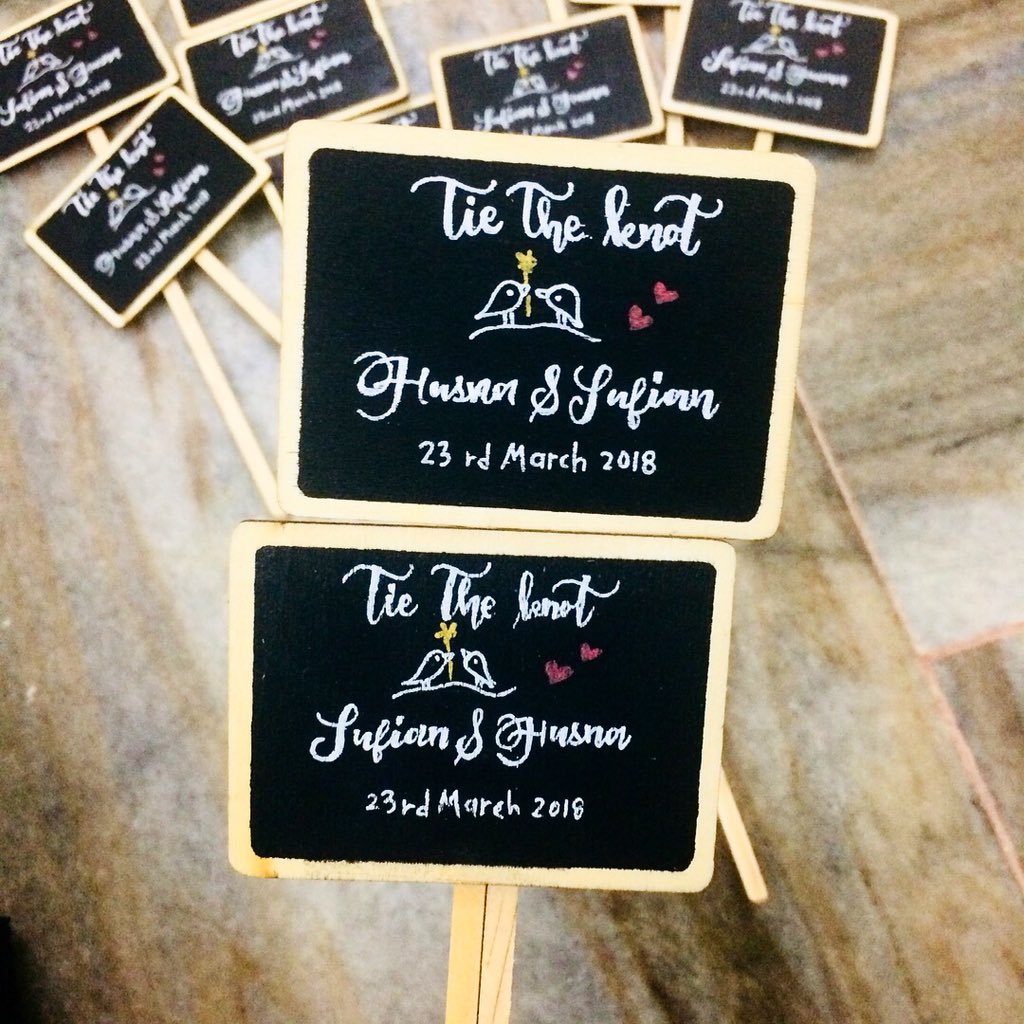 Tie The knot
Sufian & Husna
23rd March 2018
Tie The knot
Husna & Sufian
23rd March 2018
Tie The knot
Sufian & Husna
Tie The knot
Sufian & Husna
23rd March 2018
Tie The knot
Husna & Sufian
23rd March 2018
Tie The knot
Husna & Sufian
23 rd March 2018
Tie The knot
Sufian & Husna
23rd March 2018